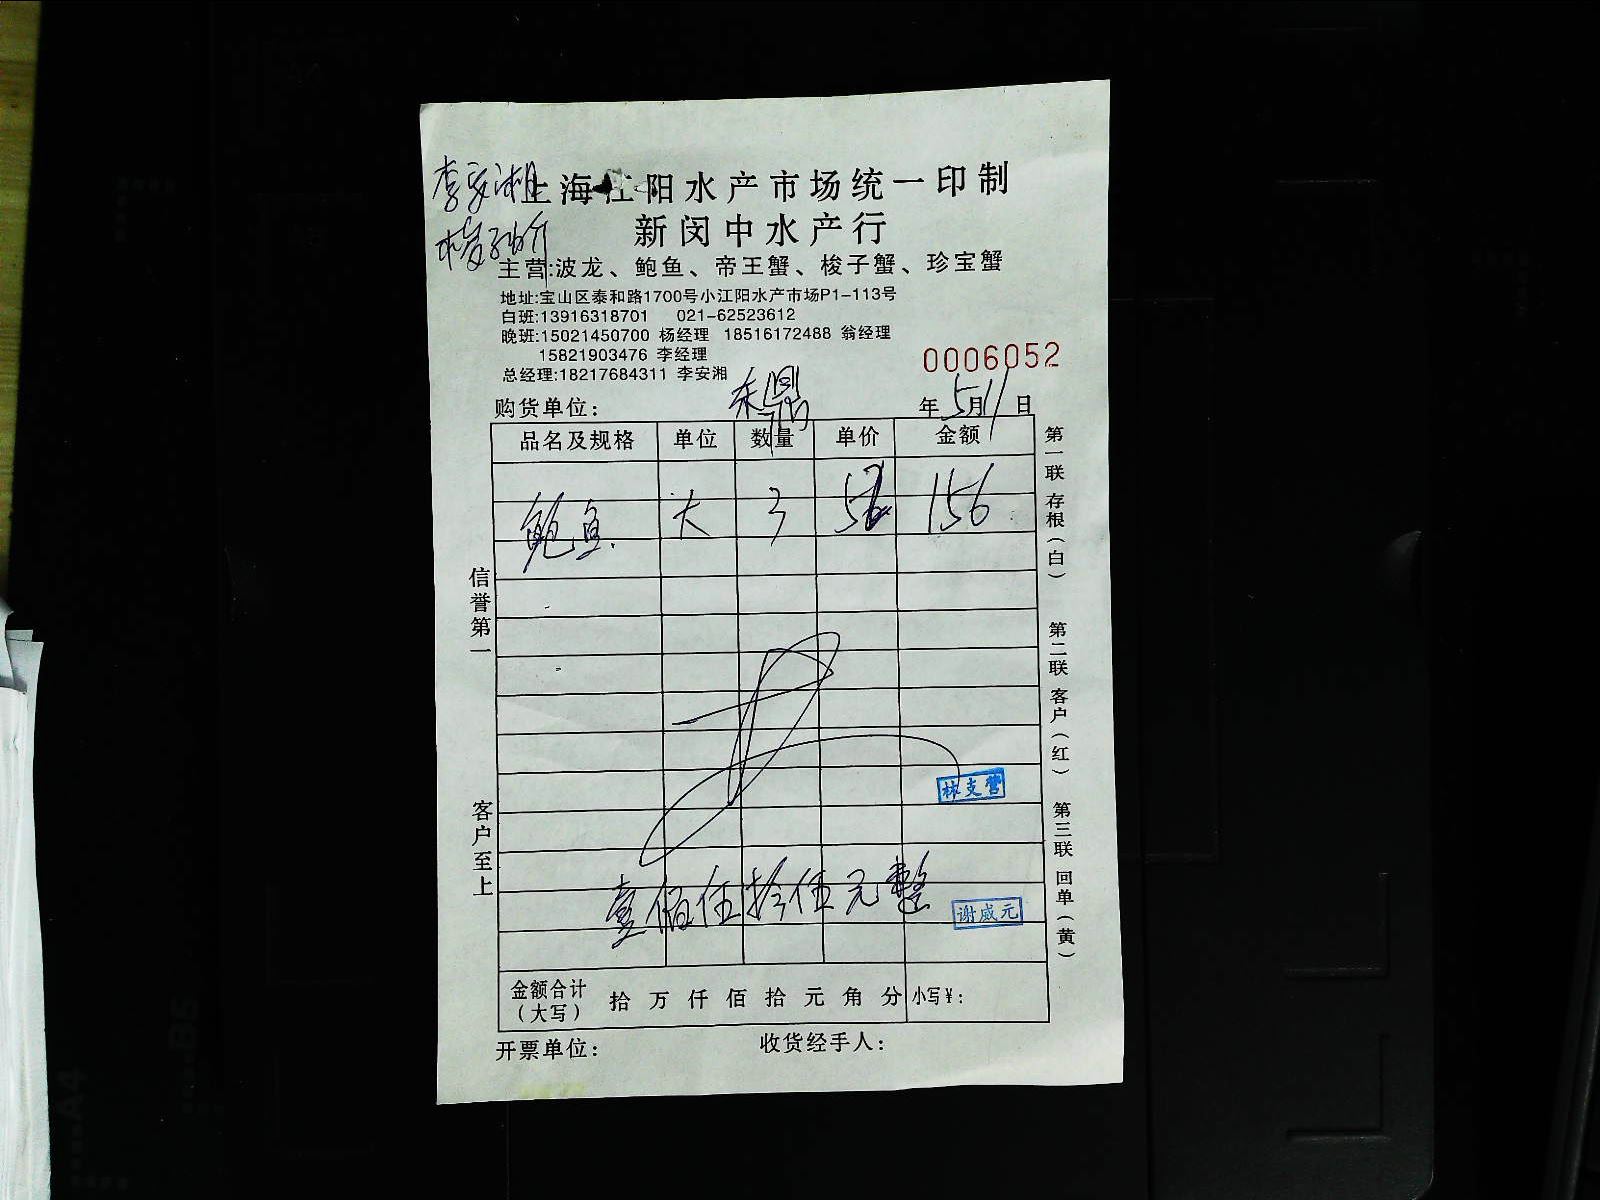 李安湘
上海江阳水产市场统一印制
新闵中水产行
主营:波龙、鲍鱼、帝王蟹、梭子蟹、珍宝蟹
地址:宝山区泰和路1700号小江阳水产市场P1-113号
白班:13916318701 021-62523612
晚班:15021450700 杨经理 18516172488 翁经理
15821903476 李经理
总经理:18217684311 李安湘
0006052
购货单位: 年5月11日
品名及规格 单位 数量 单价 金额
鲍鱼 大 3 156
信誉第一
客户至上
第一联 存根(白)
第二联 客户(红)
第三联 回单(黄)
林支营
壹佰伍拾伍元整
谢威元
金额合计(大写) 拾 万 仟 佰 拾 元 角 分 小写¥:
开票单位: 收货经手人: